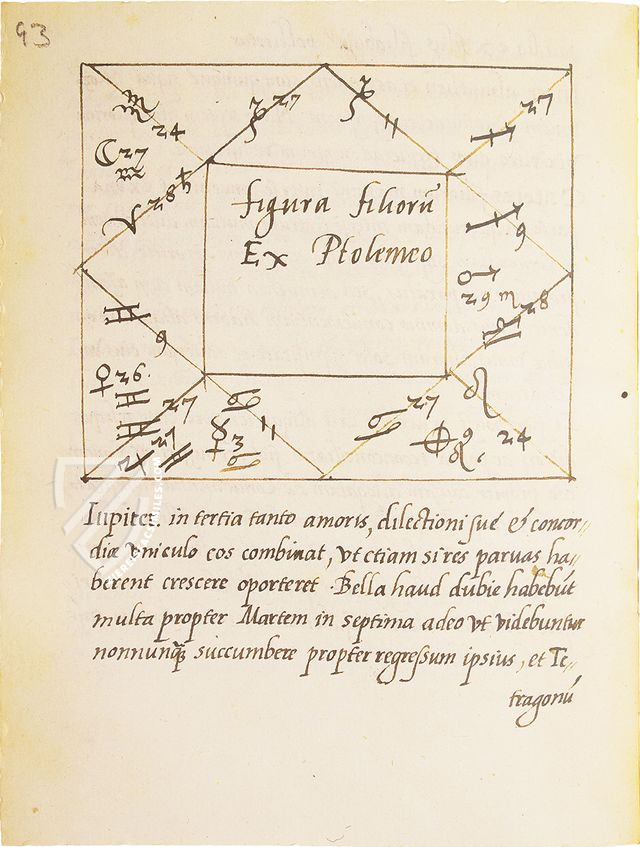 93
figura filiorū
Ex Ptolemeo
♑ 27
♑ 11
♐ 27
♏ 24
☾ 27
♏
28 ♄
♐ 9
♂
29 ♏
28
♒ 9
♀ 26.
♒
27
♋ 11
☿ 3
♋
♋ 27
♌
24
Iupiter in tertia tanto amoris, dilectioni sue & concor-
diæ vniculo eos combinat, vt etiam si res paruas ha-
berent crescere oporteret. Bella haud dubie habebūt
multa propter Martem in septima adeo vt videbuntur
nonnunq̃ succumbere propter regressum ipsius, et Te-
tragonū